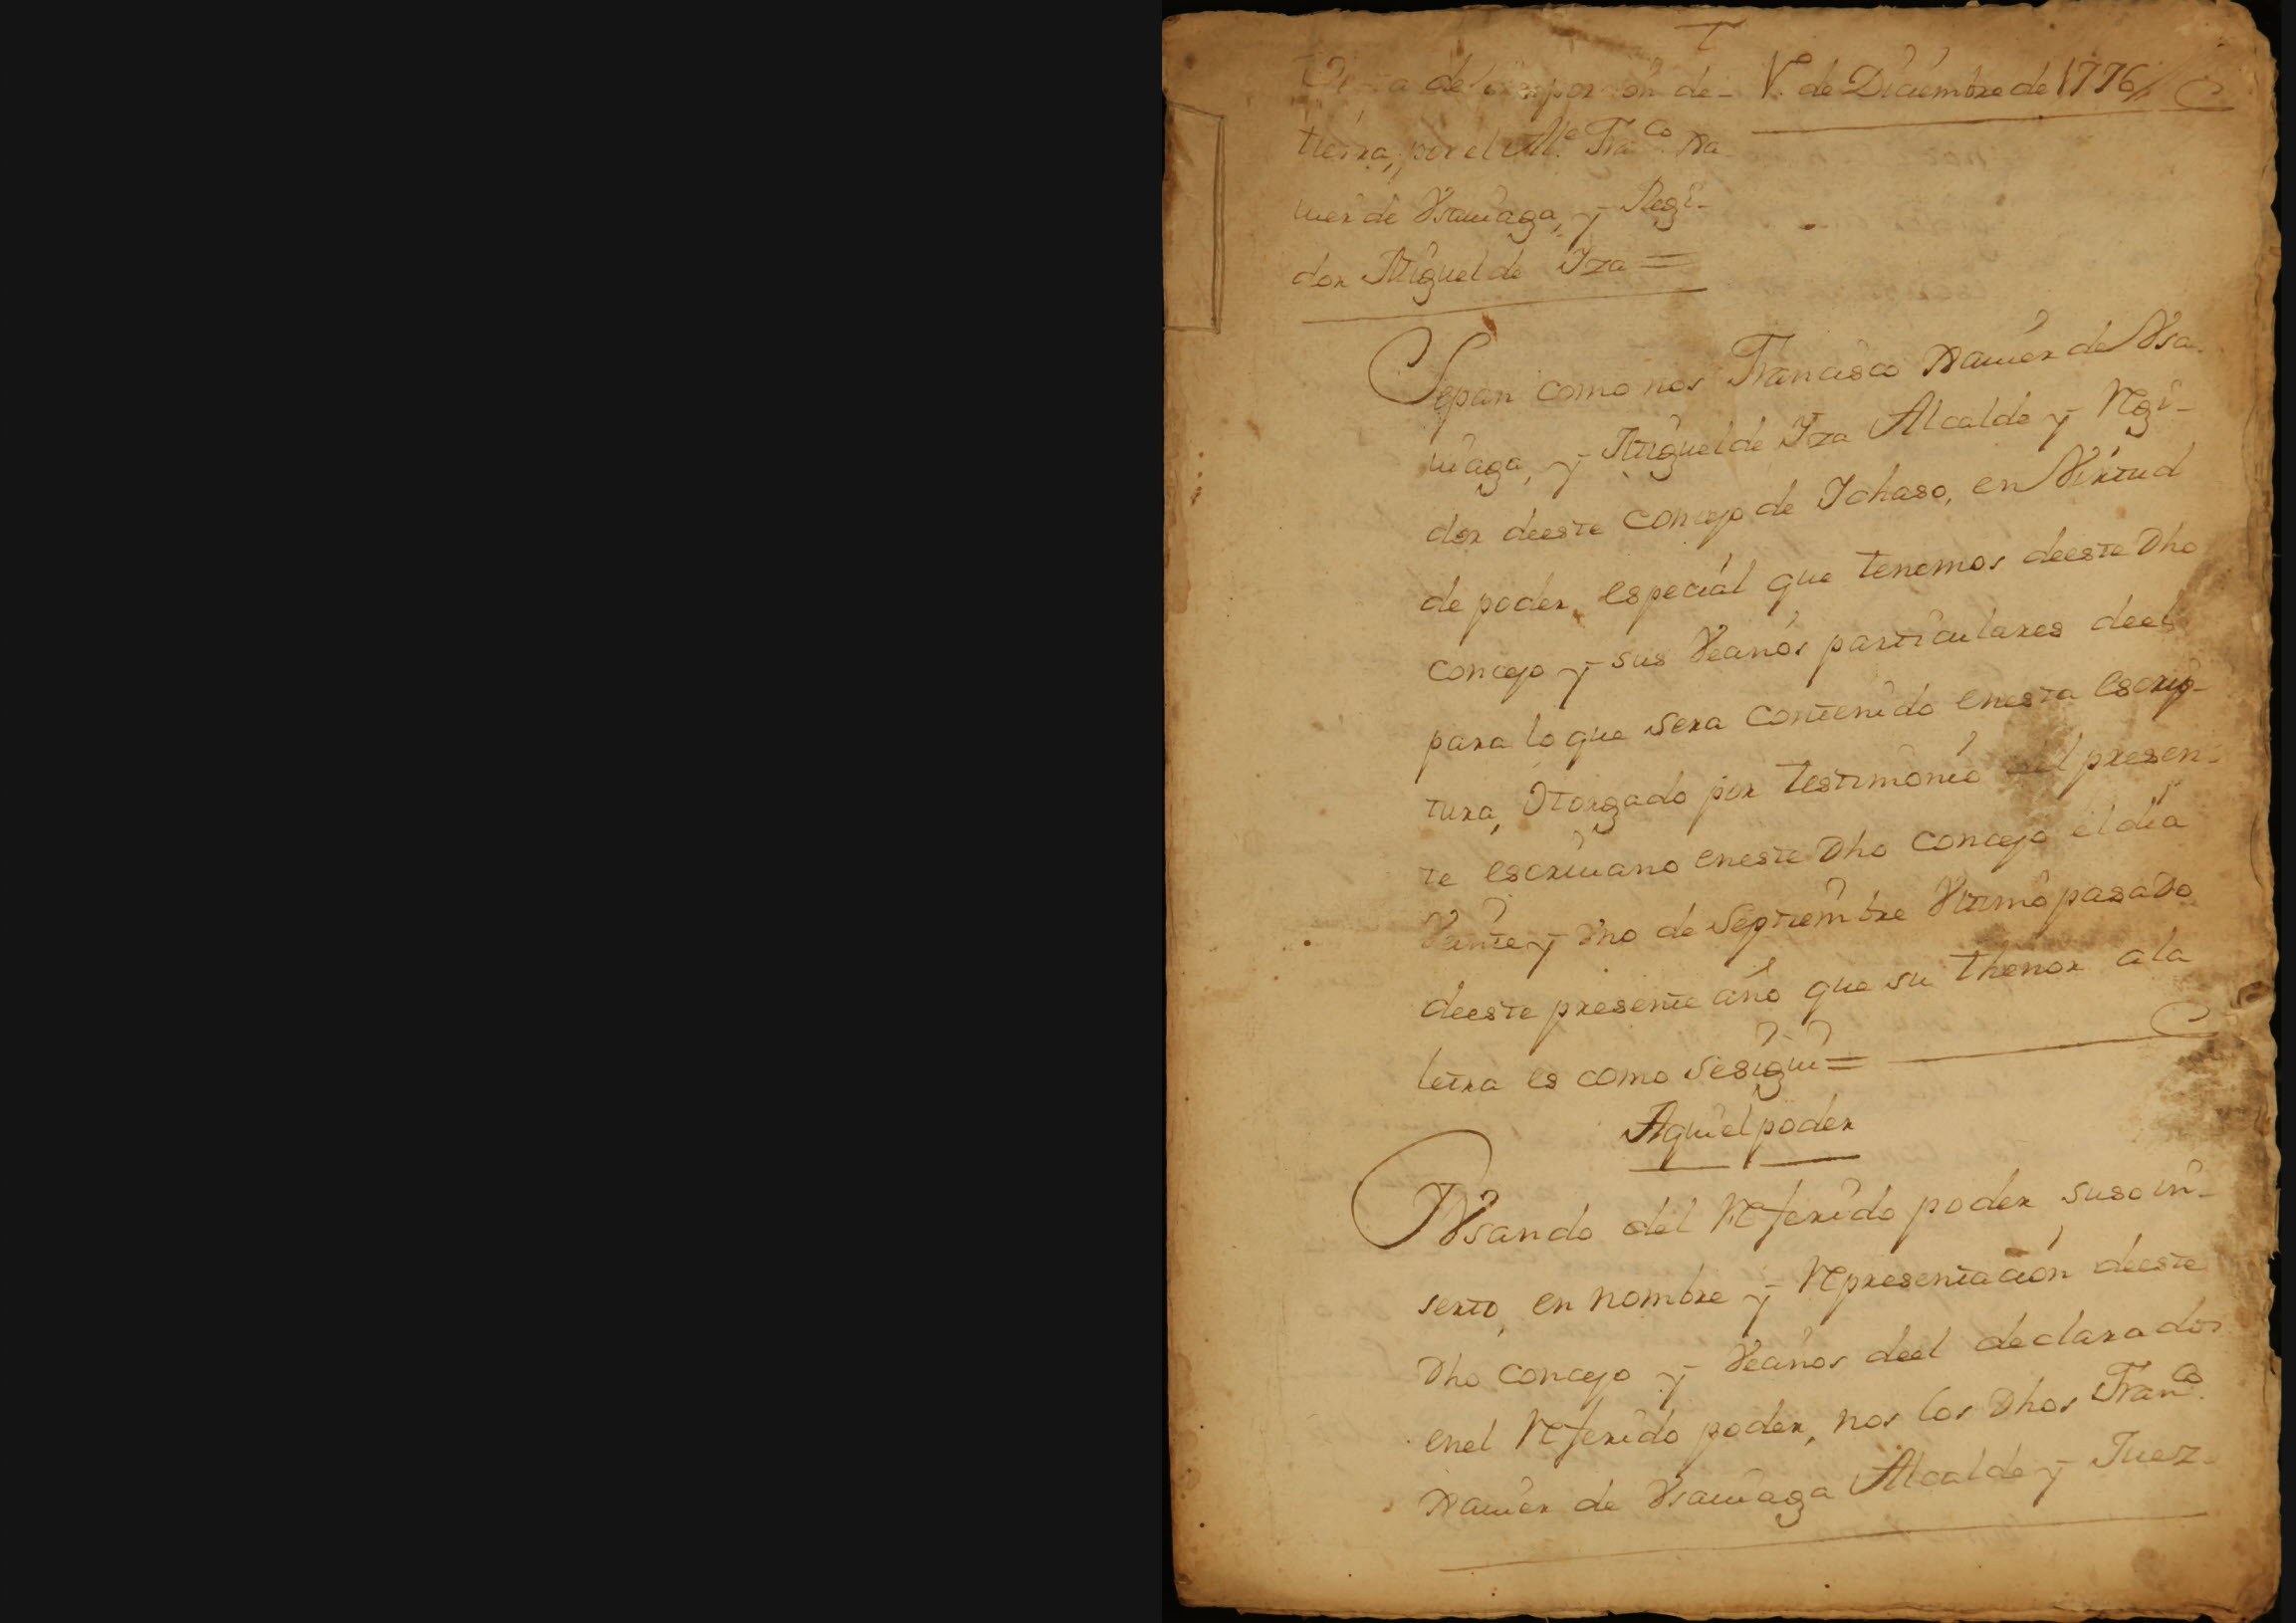 de porcion de- V.º de Diciembre de 1776
tierra, por el Al.e Fra.co Xa
uier de Vsauiaga, y Regi-
dor Miguel de Yza =
Sepan como nos Francisco Xauier de Vsa
uiaga, y Miguel de Yza Alcalde y Regi-
dor deeste concejo de Ichaso, en Virtud
de poder especial que tenemos deeste Dho
concejo y sus Vecinos particulares deel
para lo que sera contenido enesta escrip-
tura, Otorgado por testimonio del presen-
te escriuano eneste Dho concejo el dia
Veinte y Vno de Septiembre Vltimo pasado
deeste presente año que su thenor ala
letra es como sesigue =
Aqui el poder
Vsando del Referido poder suso in-
serto, en nombre y Representacion deeste
Dho concejo y Vecinos deel declarados
enel Referido poder, nos los Dhos Fran.co
Xauier de Vsauiaga Alcalde y Juez-